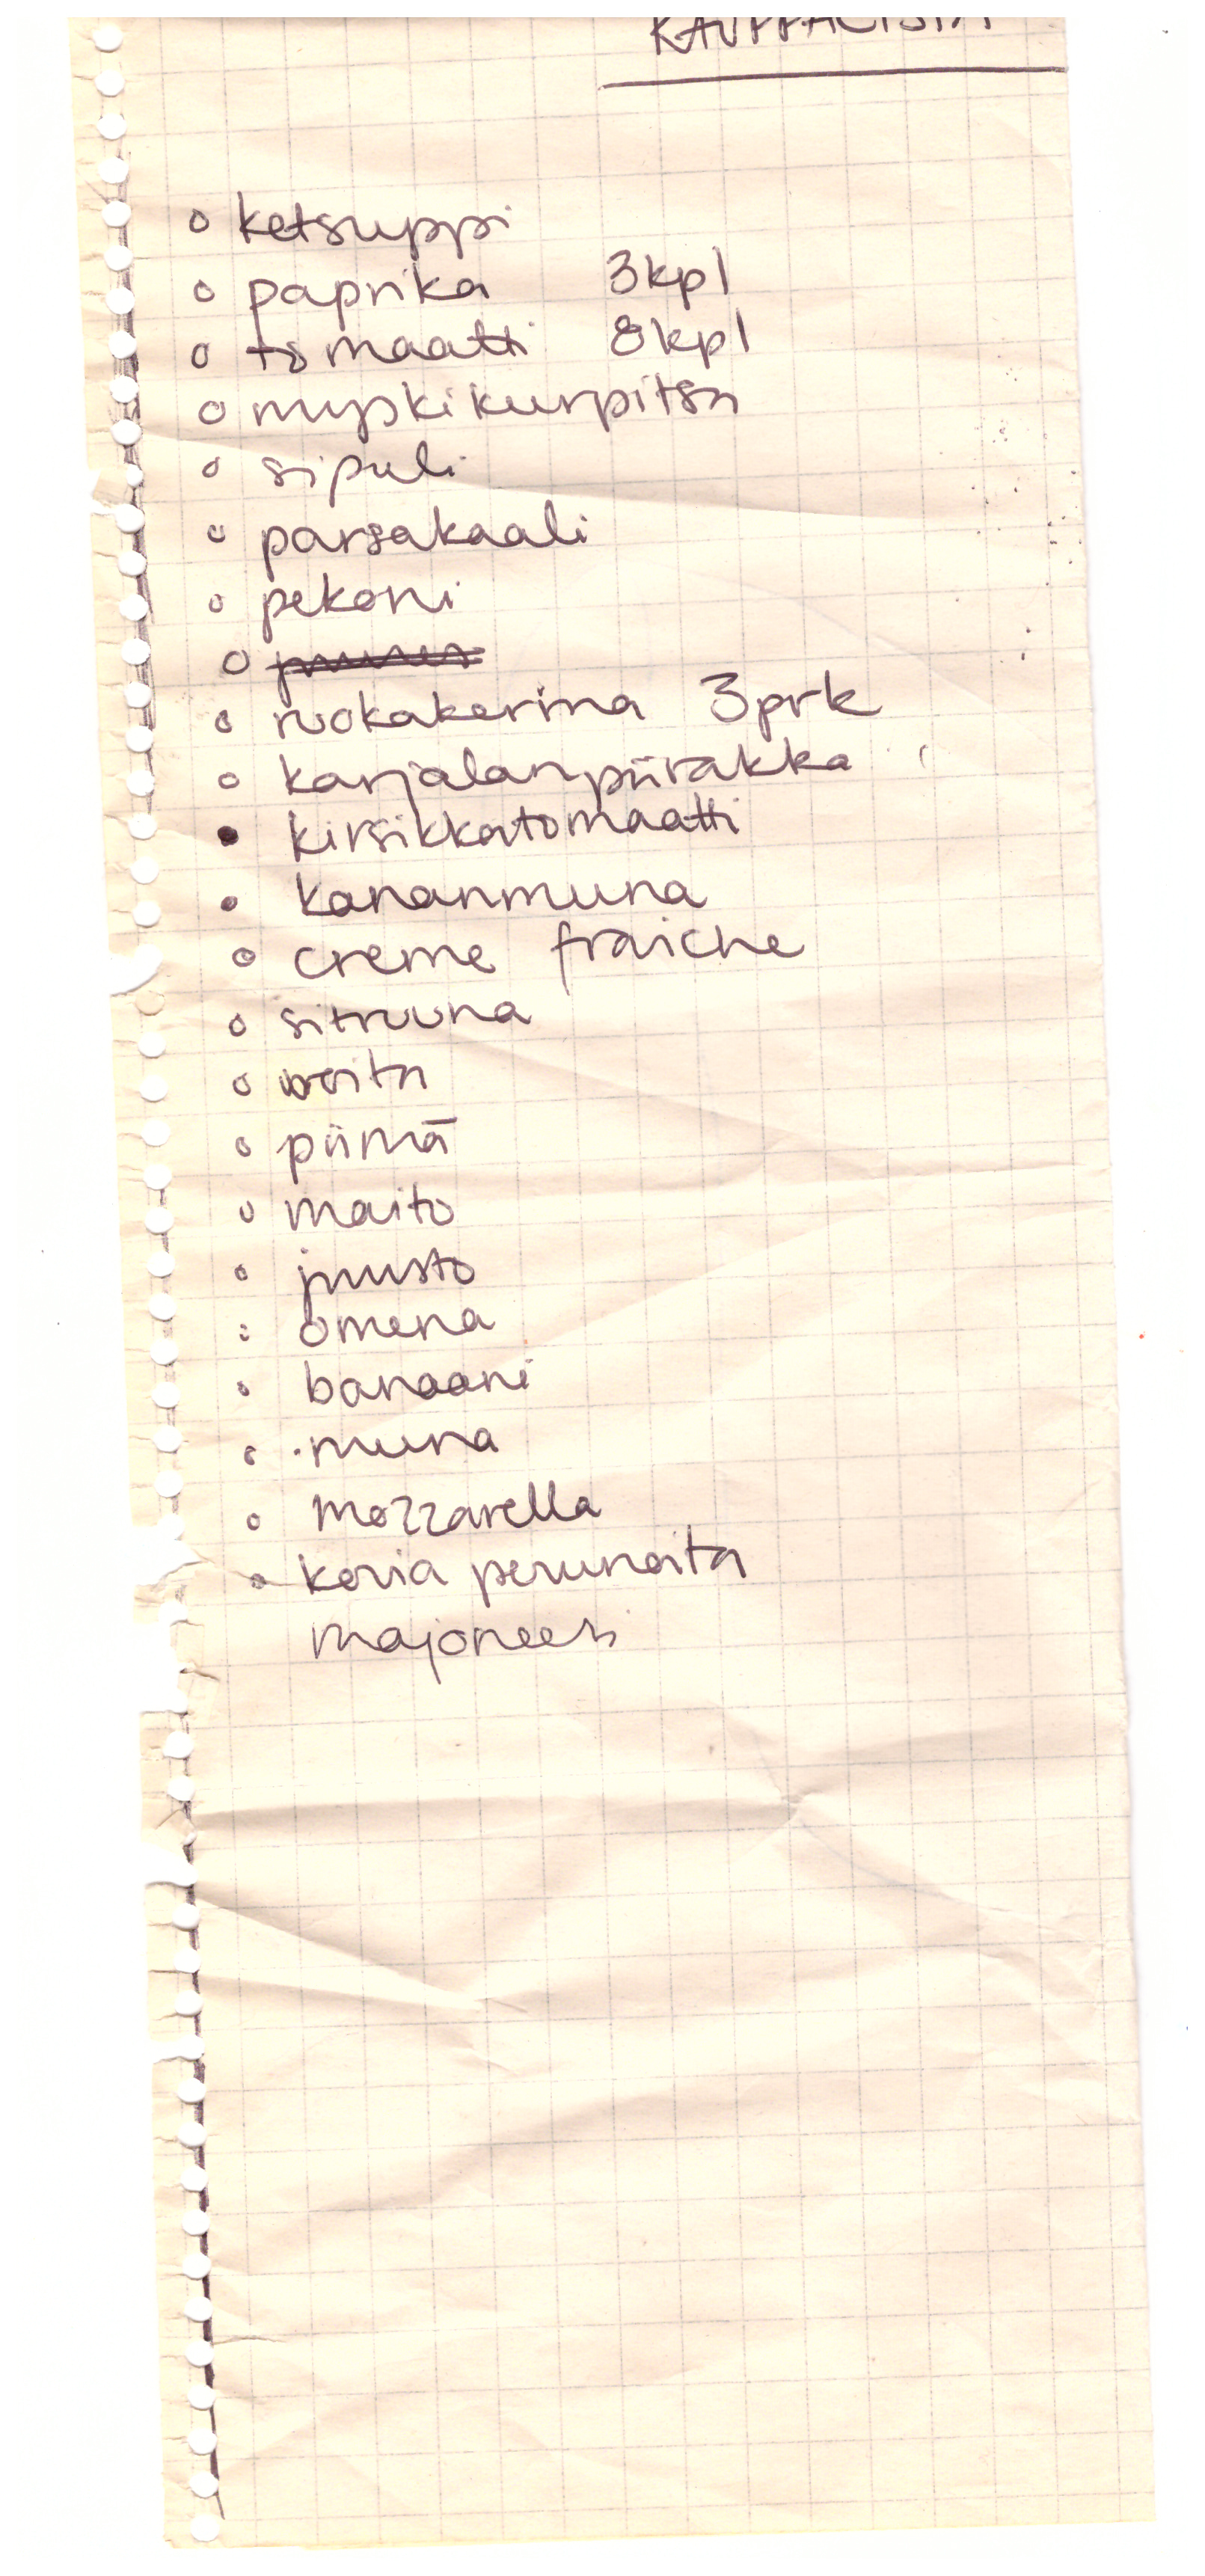 KAUPPALISTA
ketsuppi
paprika 3kpl
tomaatti 8kpl
myskikurpitsa
sipuli
parsakaali
pekoni
ruokakerma 3prk
karjalanpiirakka
kirsikkatomaatti
kananmuna
creme fraiche
sitruuna
voita
piimä
maito
juusto
omena
banaani
muna
mozzarella
kovia perunoita
majoneesi